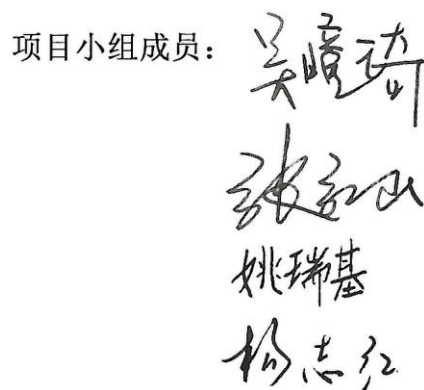 项目小组成员：吴晓琦
张红山
姚瑞基
杨志红